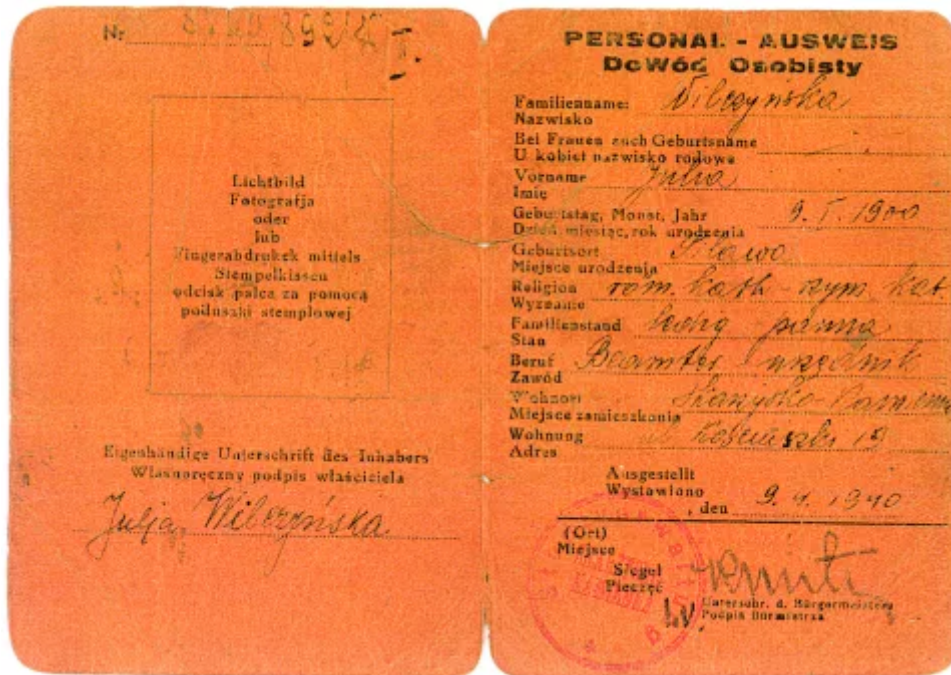 Nr
Lichtbild
Fotografja
oder
lub
Fingerabdrukek mittels
Stempelkissen
odcisk palca za pomocą
poduszki stemplowej
Eigenhändige Unterschrift des Inhabers
Własnoręczny podpis właściciela
Julja Wilczyńska
PERSONAL - AUSWEIS
DoWód Osobisty
Familienname: Wilczyńska
Nazwisko
Bei Frauen auch Geburtsname
U kobiet nazwisko rodowe
Vorname Julia
Imię
Geburtstag, Monat, Jahr 9. I. 1900
Dzień, miesiąc, rok urodzenia
Geburtsort
Miejsce urodzenia
Religion röm. kath - rzym kat
Wyznanie
Familienstand ledig - panna
Stan
Beruf Beamter urzędnik
Zawód
Wohnort Skarżysko-Kamienna
Miejsce zamieszkania
Wohnung ul. Kościuszki
Adres
Ausgestellt
Wystawiono
, den 1940
(Ort)
Miejsce
Siegel
Pieczęć
Unterschr. d. Bürgermeisters
Podpis Burmistrza